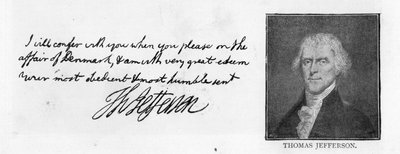 I will confer with you when you please on the
affair of Denmark, & am with very great esteem
Your most obedient & most humble servt
Th Jefferson
THOMAS JEFFERSON.